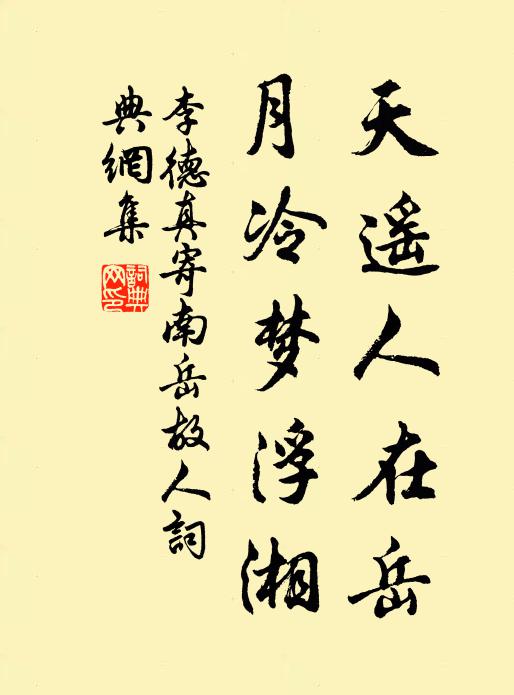 天遥人在岳
月冷梦浮湘
李德真寄南岳故人詞
典網集
詞典网印